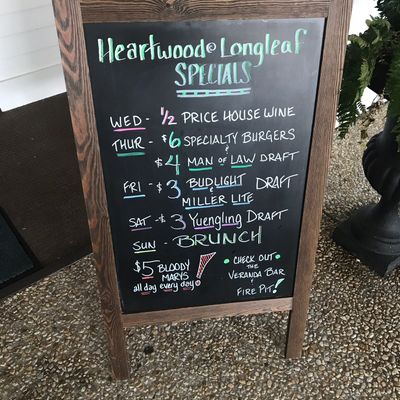 Heartwood @ Longleaf
SPECIALS
WED - 1/2 PRICE HOUSE WINE
THUR - $6 SPECIALTY BURGERS
&
$4 MAN OF LAW DRAFT
FRI - $3 BUDLIGHT DRAFT
&
MILLER LITE
SAT - $3 Yuengling DRAFT
SUN - BRUNCH
$5 BLOODY
MARYS!
all day every day
• CHECK OUT •
THE
VERANDA BAR
&
FIRE PIT!